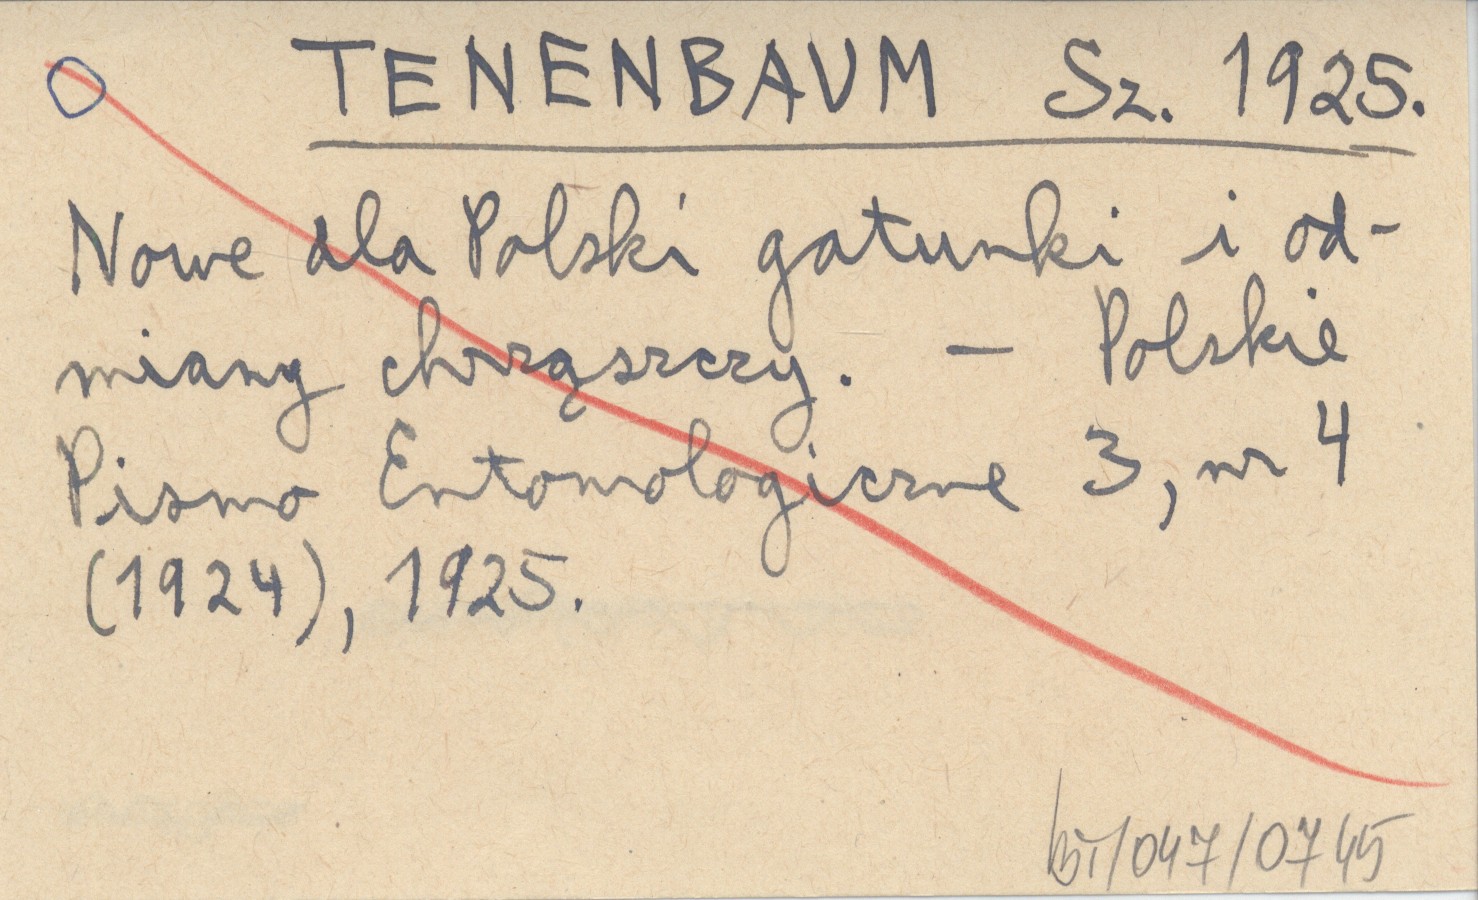 TENENBAUM Sz. 1925.
Nowe dla Polski gatunki i od-
miany chrząszczy. — Polskie
Pismo Entomologiczne 3, nr 4
(1924), 1925.
/047/0745